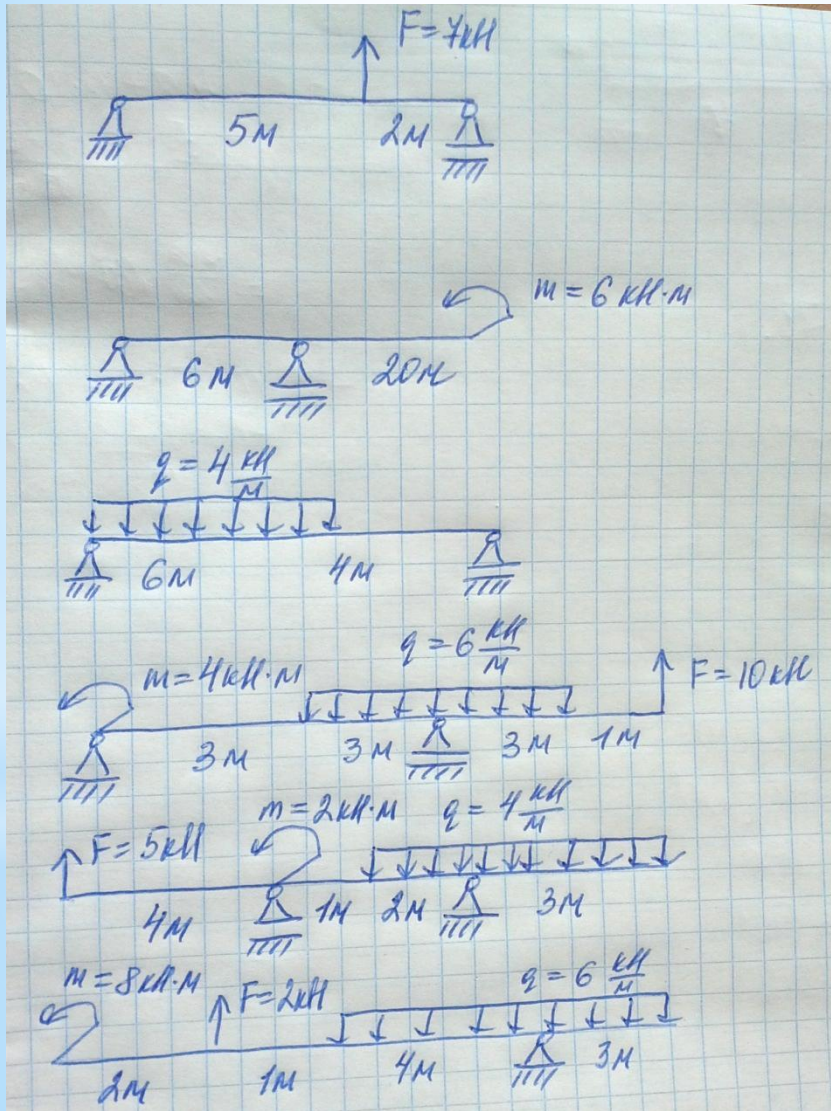 F=7кН
5м 2м
m=6 кН·м
6м 20м
q=4 кН/м
6м 4м
q=6 кН/м
m=4кН·м F=10кН
3м 3м 3м 1м
m=2кН·м q=4 кН/м
F=5кН
4м 1м 2м 3м
m=8кН·м F=2кН q=6 кН/м
2м 1м 4м 3м